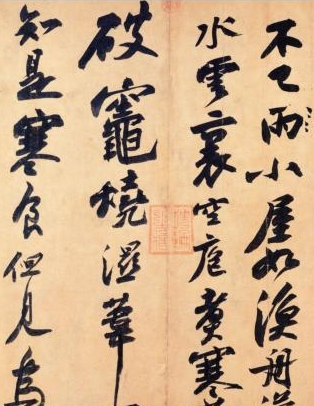 不已雨小屋如漁舟
水雲裏空庖煮寒
破竈燒濕葦
知是寒食但見烏